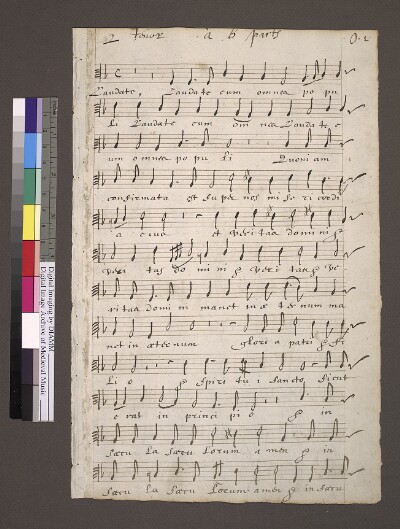 2 tenor a 6 parts
Laudate, Laudate eum omnes popu
li Laudate eum omnes Laudate e
um omnes populi Quoniam
confirmata est super nos misericordi
a ejus et veritas domini
veri tas domini veritas ve
ritas domini manet in æternum ma
net in æternum Gloria patri fi
li o Spiritu i Sancto sicut
erat in principio in
Sæcula Sæculorum amen in
Sæcula Sæculorum amen in Sæcu
Digital Imaging by DIAMM
Digital Image Archive of Medieval Music